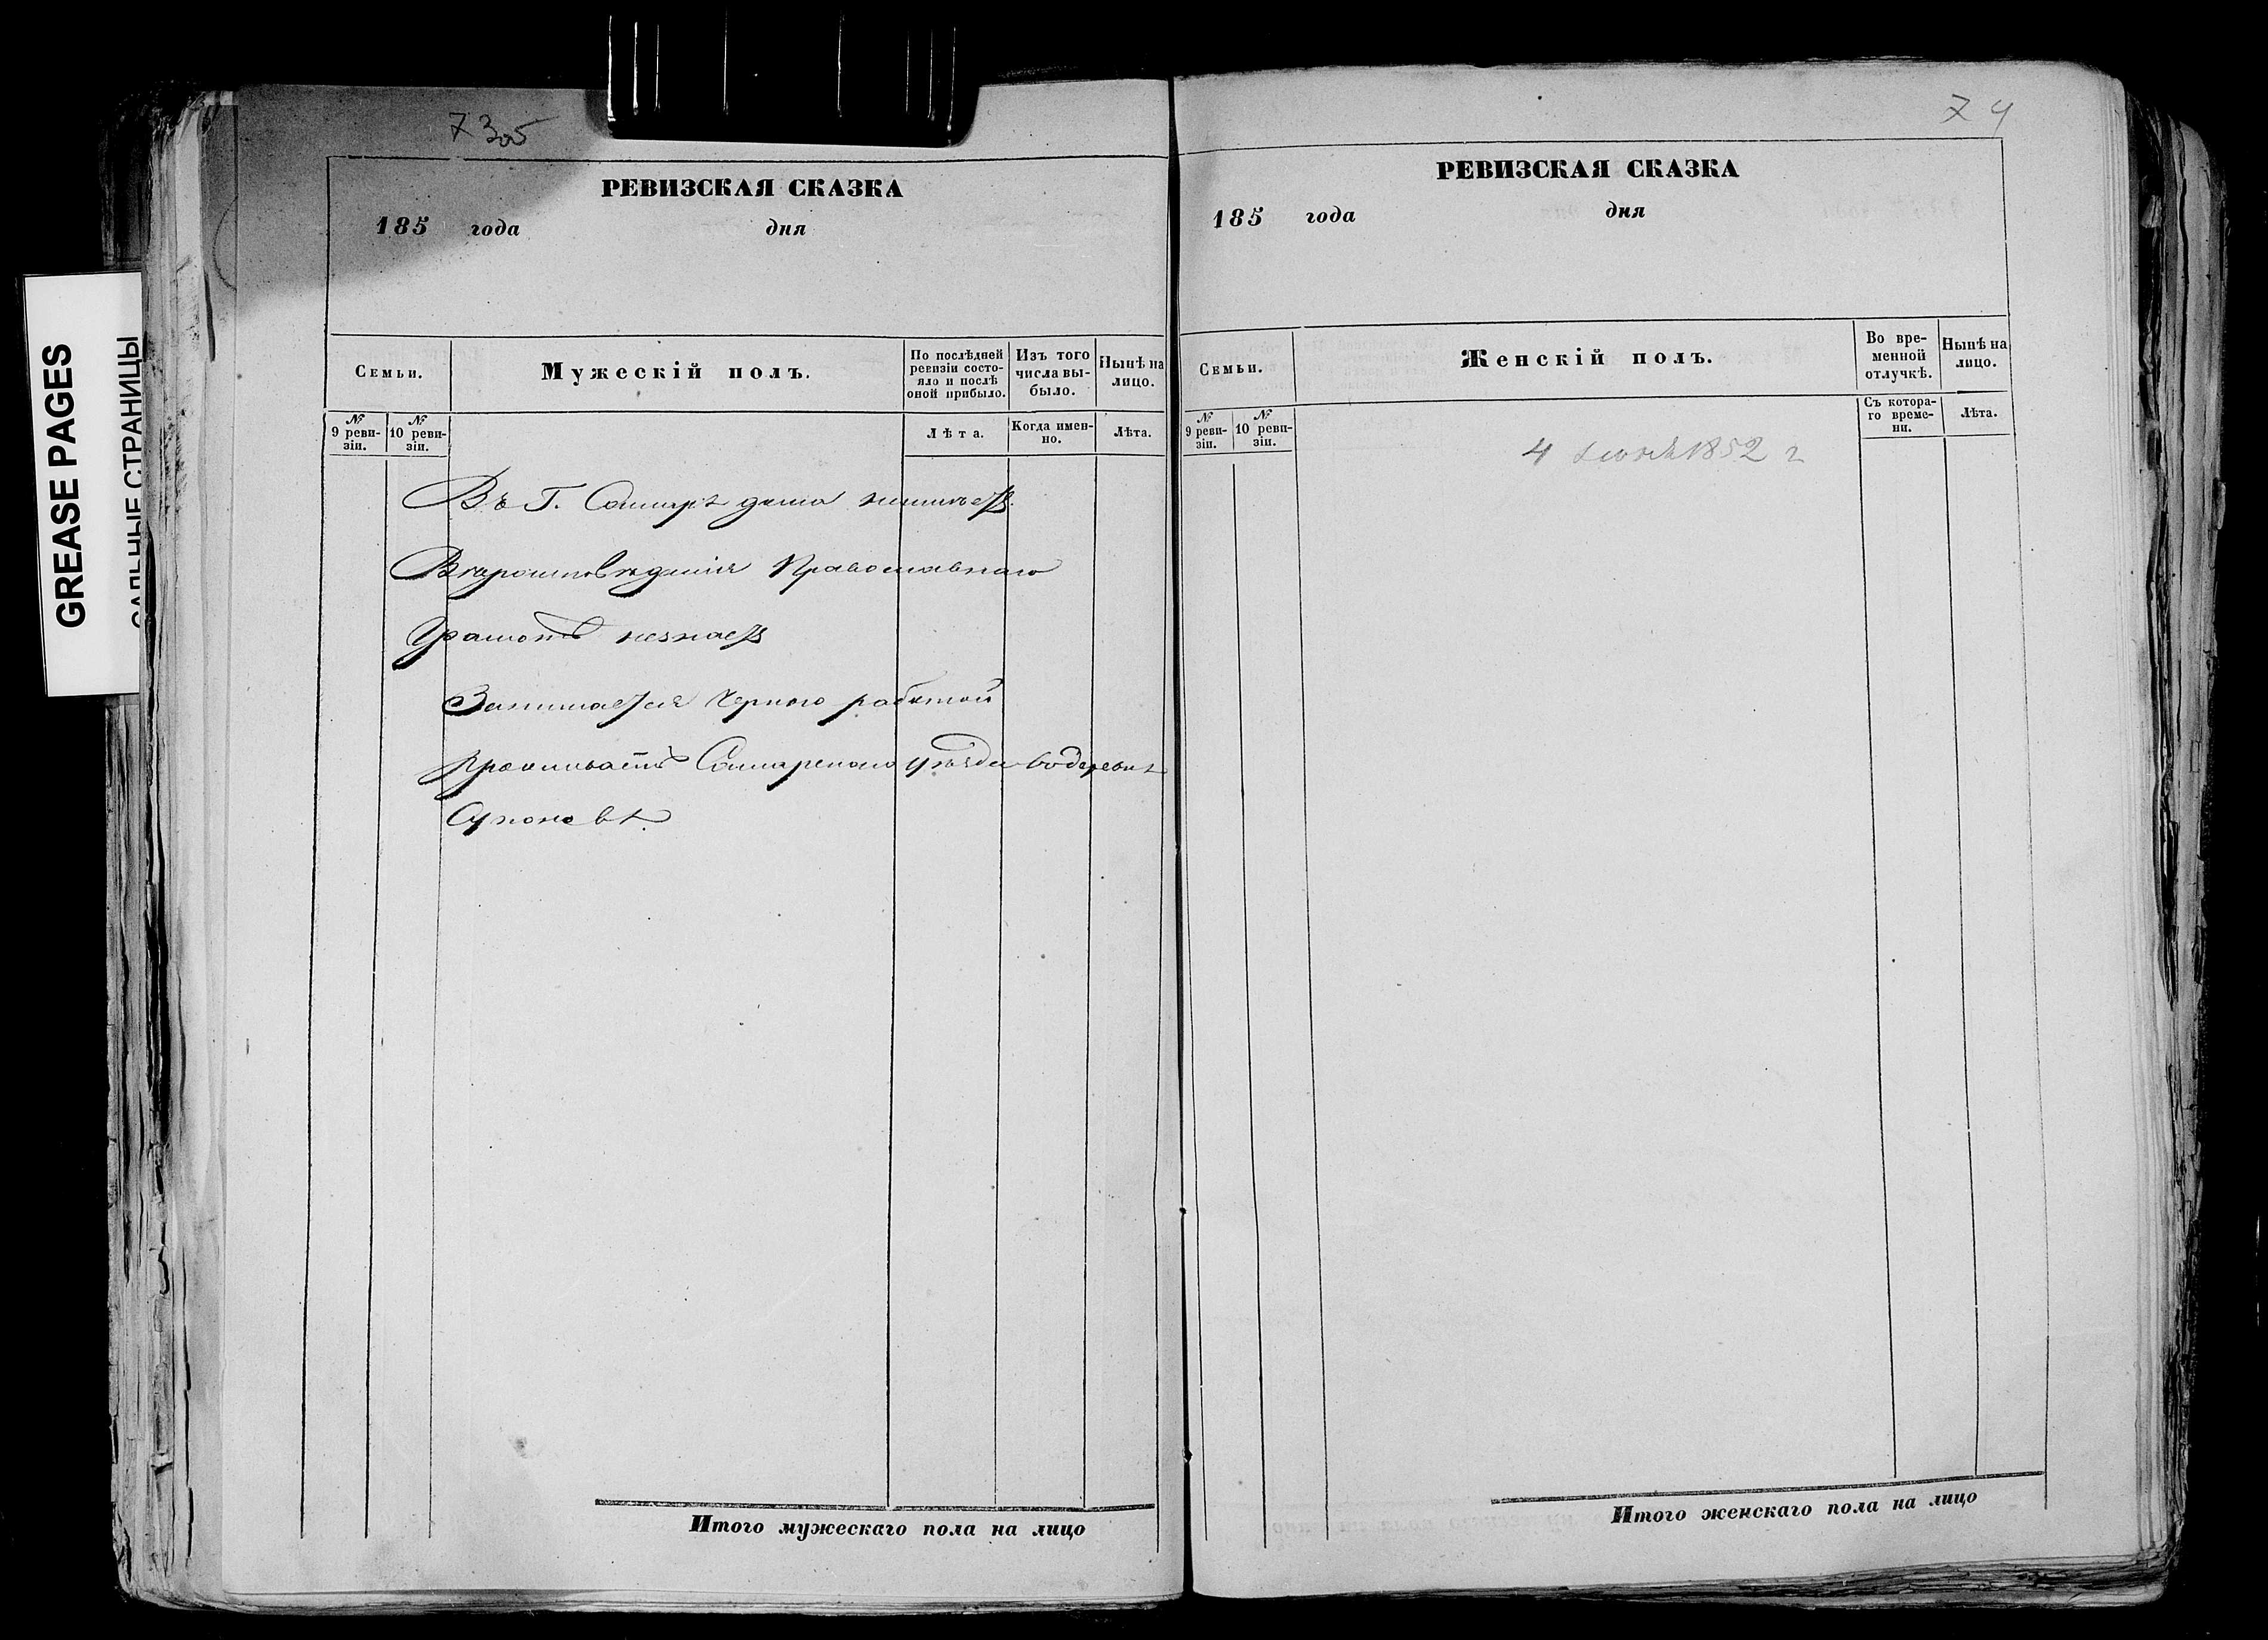 GREASE PAGES
САЛЬНЫЕ СТРАНИЦЫ
73об
РЕВИЗСКАЯ СКАЗКА
185 года дня
Семьи.
Мужескій полъ.
По послѣдней ревизіи состояло и послѣ оной прибыло.
Изъ того числа выбыло.
Нынѣ на лицо.
№ 9 ревизіи.
№ 10 ревизіи.
Лѣта.
Когда именно.
Лѣта.
Въ Г. Самарѣ дома неимѣетъ.
Вѣроисповѣданія Православнаго
Грамотѣ незнаетъ
Занимается Черною работой
Проживаетъ Самарскаго уѣзда въ деревнѣ
Итого мужескаго пола на лицо
74
РЕВИЗСКАЯ СКАЗКА
185 года дня
Семьи.
Женскій полъ.
Во временной отлучкѣ.
Нынѣ на лицо.
№ 9 ревизіи.
№ 10 ревизіи.
Съ котораго времени.
Лѣта.
4 1852 г
Итого женскаго пола на лицо